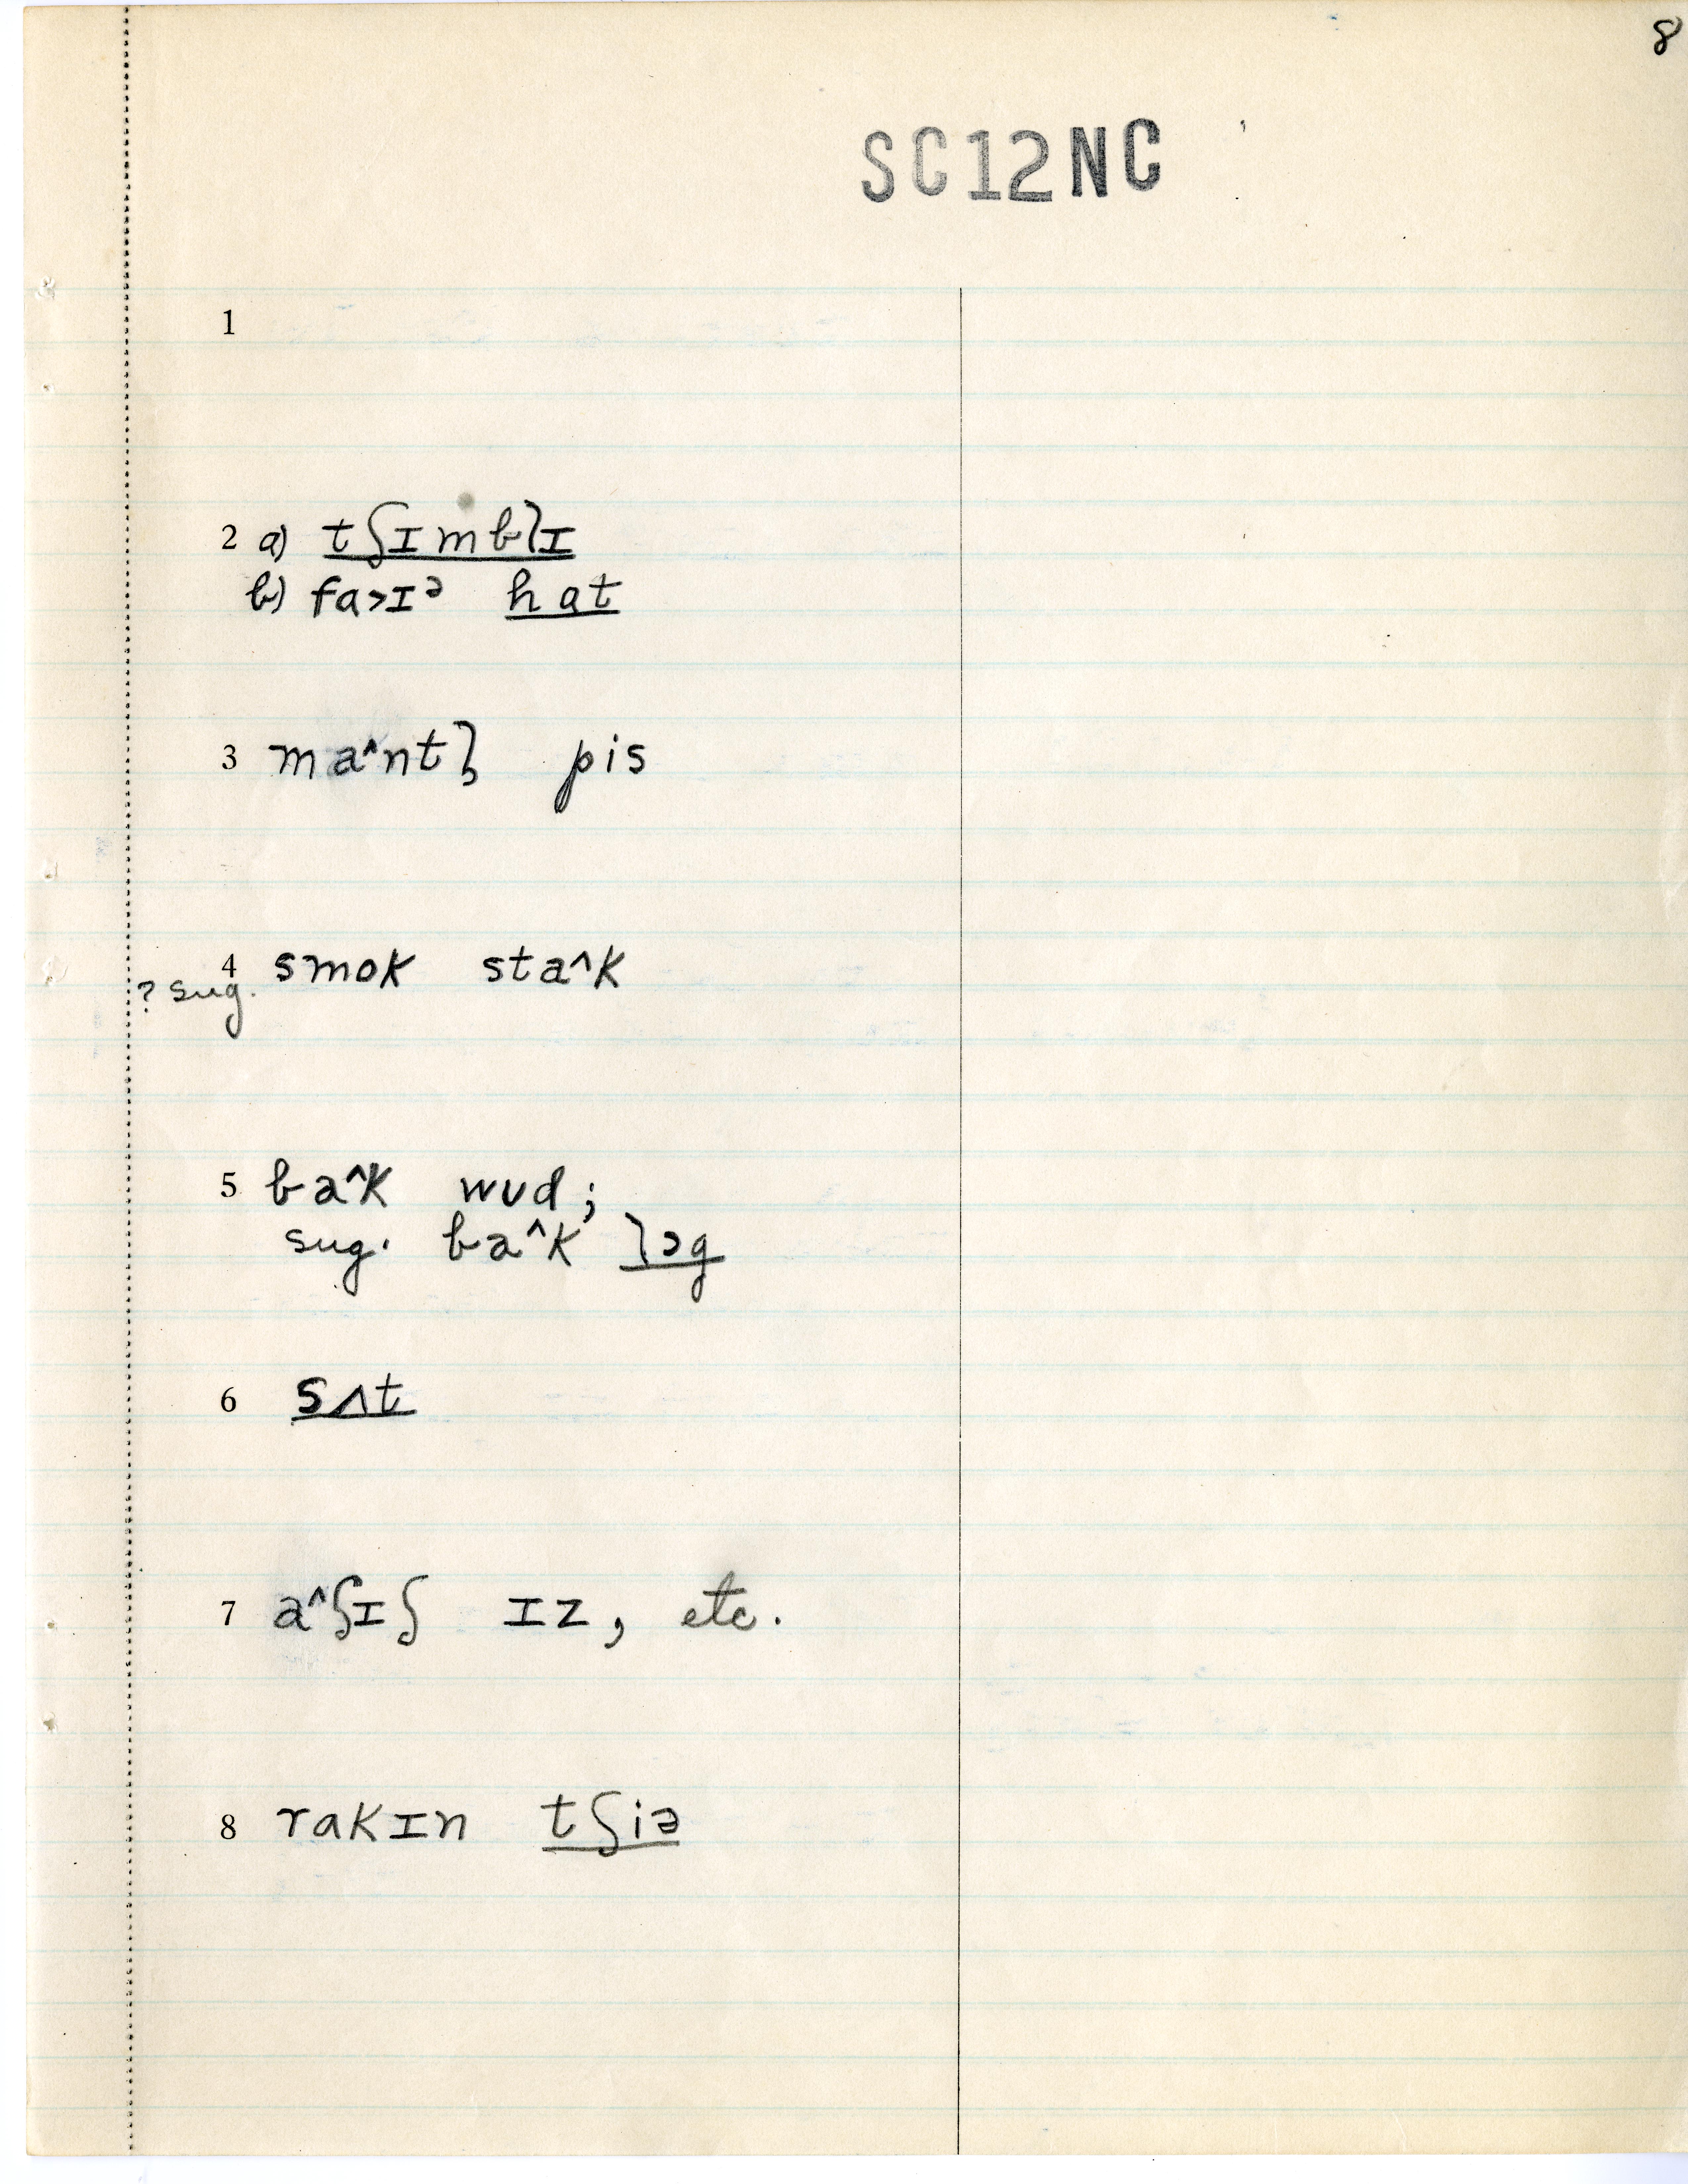 8
SC12NC
1
2 a) tʃɪmblɪ
b) fa>ɪᵊ hat
3 ma^ntl̩ pis
4 smok sta^k
? sug.
5 ba^k wʊd;
sug. ba^k lɔg
6 sʌt
7 a^ʃɪʃ ɪz, etc.
8 rakɪn tʃiə